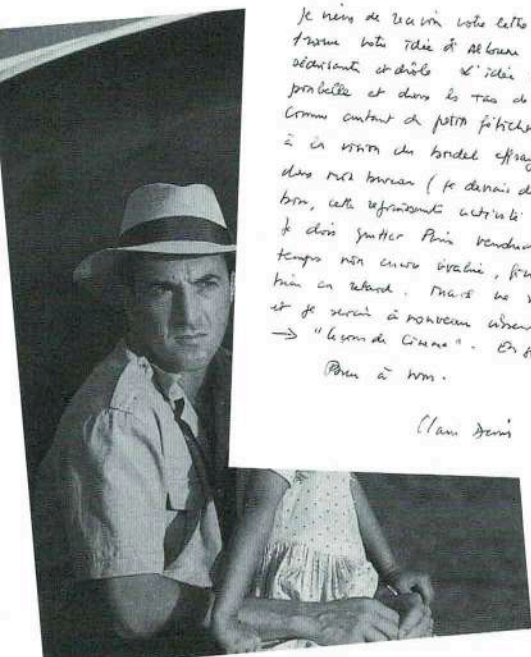 je viens de recevoir votre lettre
trouve votre idée d'Album
séduisante et drôle L'idée
poubelle et dans les tas de
comme autant de petits fétiches
à la vision du bordel
dans mon bureau ( je devrais
bon, cette réjouissante activité
Je dois quitter Paris
temps non encore évalué,
bien en retard. mais ne
et je serai à nouveau
→ "Leçon de Cinéma". En
Bien à vous.
Claire Denis